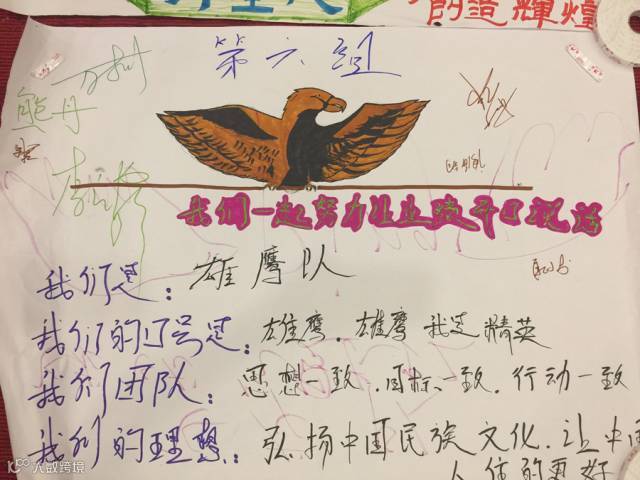 造輝煌
第六组
熊丹
我們一起努力让业绩开口说话
我们是：雄鹰队
我们的口号是：雄鹰．雄鹰 我是精英
我们团队：思想一致．目标一致．行动一致
我们的理想：弘扬中国民族文化．让中国
人住的更好
大数跨境